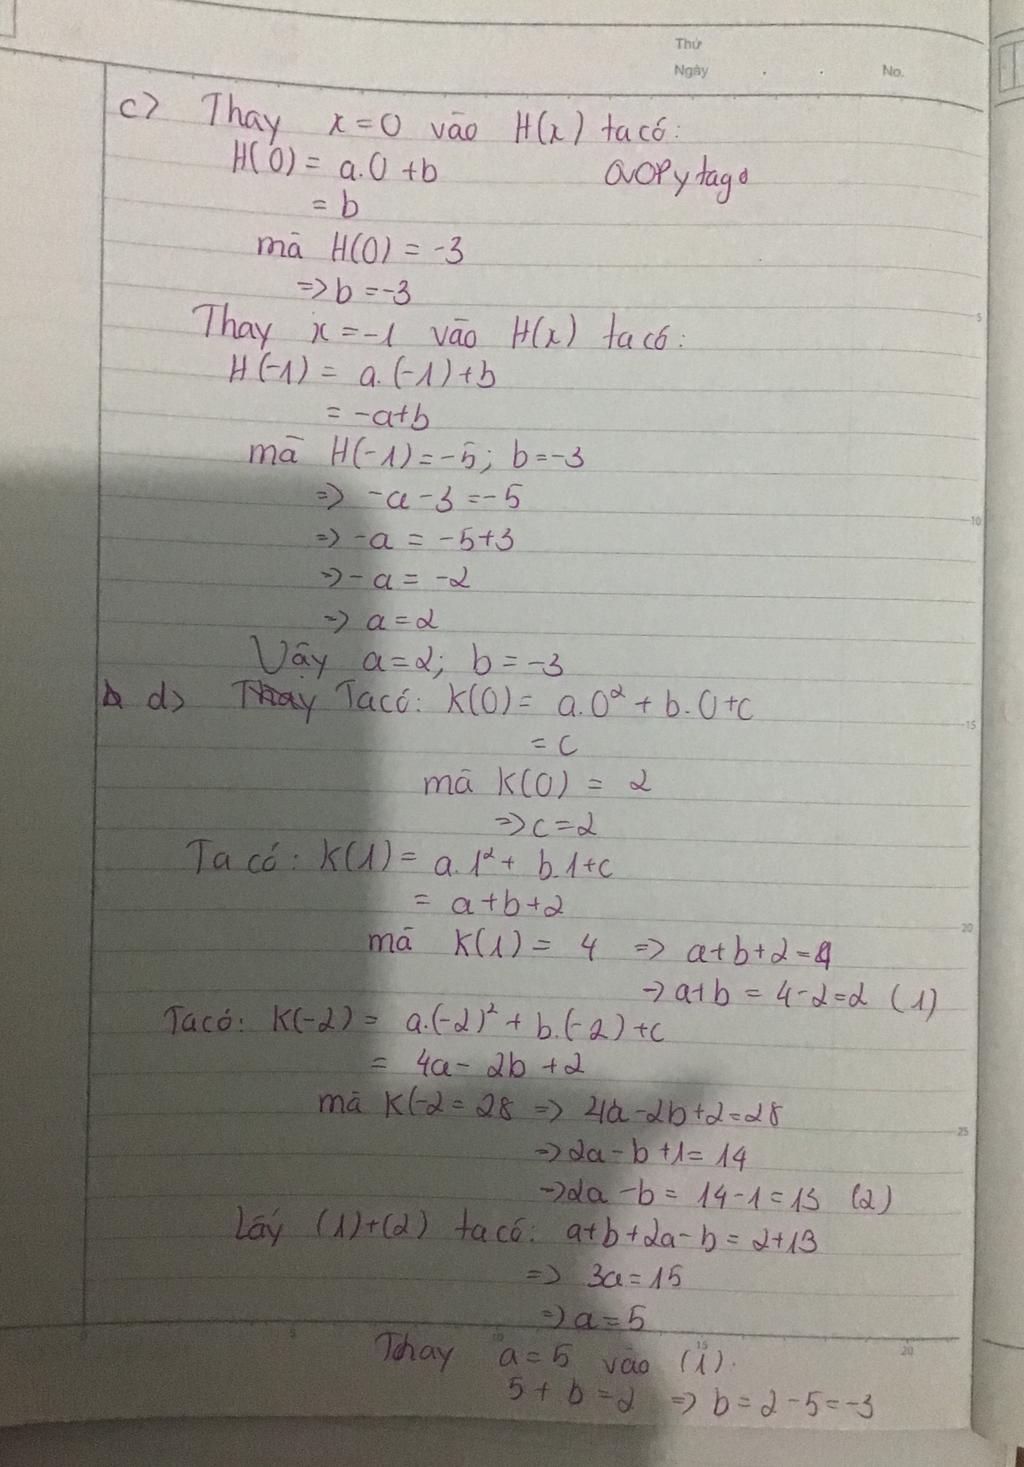 Thứ
Ngày . . No.
c) Thay x = 0 vào H(x) ta có:
H(0) = a.0 + b
= b
mà H(0) = -3
=> b = -3
Thay x = -1 vào H(x) ta có:
H(-1) = a.(-1)+b
= -a+b
mà H(-1) = -5; b = -3
=> -a - 3 = -5
=> -a = -5+3
=> -a = -2
=> a = 2
Vậy a = 2; b = -3
d) Ta có: K(0) = a.0² + b.0+c
= c
mà K(0) = 2
=> c = 2
Ta có: K(1) = a.1² + b.1+c
= a+b+2
mà K(1) = 4 => a+b+2=4
-> a+b = 4-2=2 (1)
Ta có: K(-2) = a.(-2)² + b.(-2)+c
= 4a - 2b + 2
mà K(-2 = 28 => 4a-2b+2=28
=> 2a - b +1 = 14
=> 2a - b = 14-1 = 13 (2)
Lấy (1)+(2) ta có: a+b+2a-b = 2+13
=> 3a = 15
=> a = 5
Thay a = 5 vào (1).
5 + b = 2 => b = 2-5 = -3
5
10
15
20
25
5
10
15
20